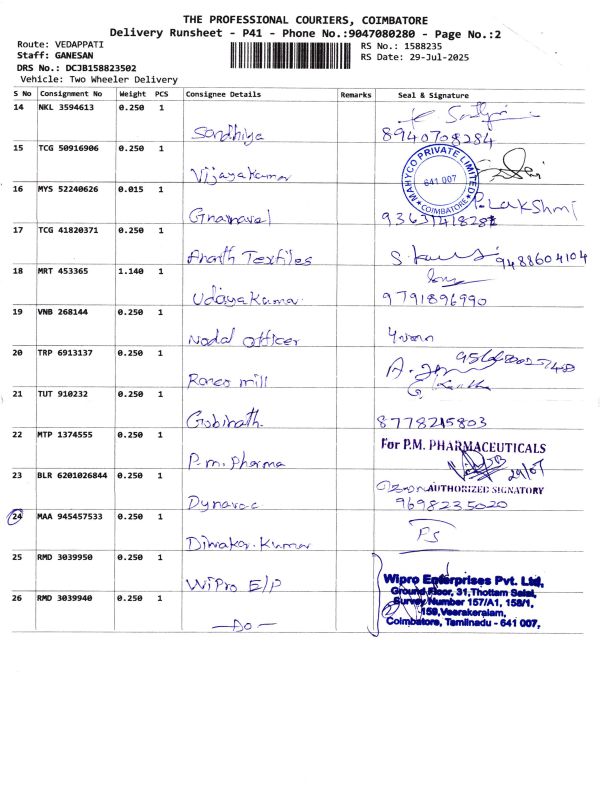 THE PROFESSIONAL COURIERS, COIMBATORE
Delivery Runsheet - P41 - Phone No.:9047080280 - Page No.:2
Route: VEDAPPATI
RS No.: 1588235
Staff: GANESAN
RS Date: 29-Jul-2025
DRS No.: DCJB158823502
Vehicle: Two Wheeler Delivery
S No Consignment No Weight PCS Consignee Details Remarks Seal & Signature
14 NKL 3594613 0.250 1
Sandhiya 8940708284
15 TCG 50916906 0.250 1
Vijayakumar
MAHYCO PRIVATE LIMITED
641 007
COIMBATORE
16 MYS 52240626 0.015 1
P. Lakshmi
Gnanavel
17 TCG 41820371 0.250 1
Ananth Textiles 9488604104
18 MRT 453365 1.140 1
Udayakumar 9791896990
19 VNB 268144 0.250 1
Nodal officer
20 TRP 6913137 0.250 1
Ranco mill
21 TUT 910232 0.250 1
Gobinath 8778215803
22 MTP 1374555 0.250 1
For P.M. PHARMACEUTICALS
P.m. Pharma
29/07
23 BLR 6201026844 0.250 1
AUTHORIZED SIGNATORY
9698235020
24 MAA 945457533 0.250 1
Diwakar. Kumar
25 RMD 3039950 0.250 1
WiPro E/P
26 RMD 3039940 0.250 1
—Do—
Wipro Enterprises Pvt. Ltd,
Ground Floor, 31,Thottam Salai,
Survey Number 157/A1, 158/1,
159,Veerakeralam,
Coimbatore, Tamilnadu - 641 007,